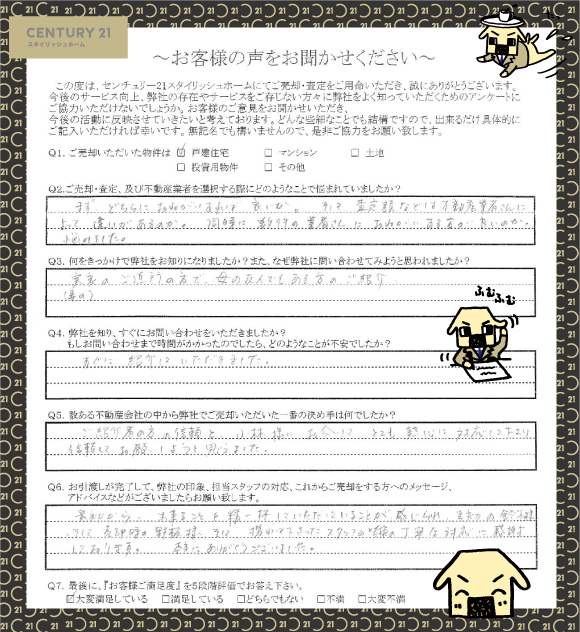 CENTURY 21
スタイリッシュホーム
～お客様の声をお聞かせください～
この度は、センチュリー21スタイリッシュホームにてご売却・査定をご用命いただき、誠にありがとうございます。
今後のサービス向上、弊社の存在やサービスをご存じない方々に弊社をよく知っていただくためのアンケートに
ご協力いただけないでしょうか。お客様のご意見をお聞かせいただき、
今後の活動に反映させていきたいと考えております。どんな些細なことでも結構ですので、出来るだけ具体的に
ご記入いただければ幸いです。無記名でも構いませんので、是非ご協力をお願い致します。
Q1. ご売却いただいた物件は ☑ 戸建住宅 □ マンション □ 土地
□ 投資用物件 □ その他
Q2.ご売却・査定、及び不動産業者を選択する際にどのようなことで悩まれていましたか?
まず どちらにおねがいすれば良いか。 そして 査定額などは不動産業者さんに
よって 違いがあるのか。 同時に 数社の業者さんに おねがいする方が良いのか。
悩みました。
Q3. 何をきっかけで弊社をお知りになりましたか?また、なぜ弊社に問い合わせてみようと思われましたか?
実家の ご近所の方で、母の友人でもある方の ご紹介
ふむふむ
Q4. 弊社を知り、すぐにお問い合わせをいただきましたか?
もしお問い合わせまで時間がかかったのでしたら、どのようなことが不安でしたか?
すぐに 紹介して いただきました。
Q5. 数ある不動産会社の中から弊社でご売却いただいた一番の決め手は何でしたか?
ご紹介者の方の信頼と 小林様に お会いして とても 熱心に 対応して下さり
信頼して お願いしようと 思いました。
Q6. お引渡しが完了して、弊社の印象、担当スタッフの対応、これからご売却をする方へのメッセージ、
アドバイスなどがございましたらお願い致します。
最初から、 出来ることを 精一杯していただいていることが 感じられ、
そして 携わって下さった スタッフの皆様の丁寧な対応に 感謝
しております。 本当にありがとうございました。
Q7. 最後に、『お客様ご満足度』を5段階評価でお答え下さい。
☑大変満足している □満足している □どちらでもない □不満 □大変不満